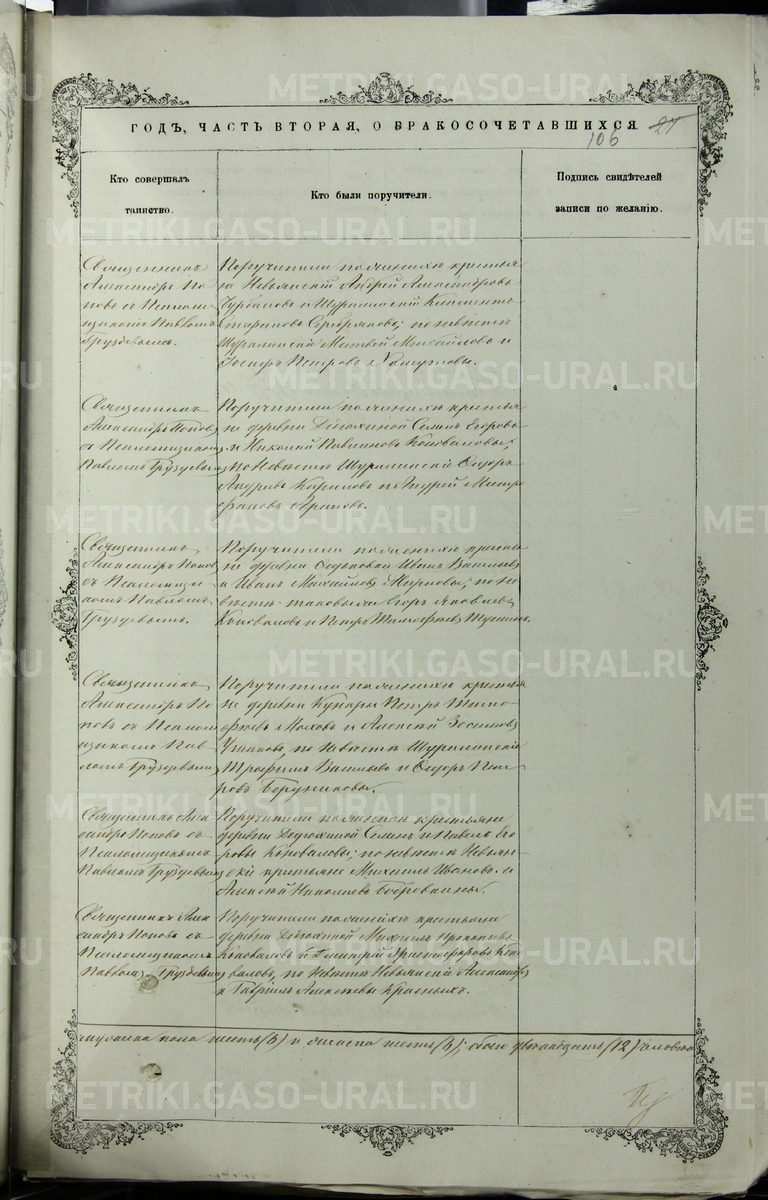 METRIKI.GASO-URAL.RU
ГОДЪ, ЧАСТЬ ВТОРАЯ, О БРАКОСОЧЕТАВШИХСЯ. 27
106
Кто совершалъ
таинство.
Кто были поручители.
Подпись свидѣтелей
записи по желанію.
Священникъ
Александръ По
повъ съ Псалом
щикомъ Павломъ
Груздевымъ.
Поручители по женихѣ кресть
не Невьянскій Андрей Александровъ
и Шуралинскій Климентъ
Серебряковъ; по невѣстѣ
Шуралинскіе Матвей Михайловъ и
Іосифъ Петровъ Хомутовы.
Священникъ
Александръ Поповъ
съ Псаломщикомъ
Павломъ Груздевымъ
Поручители по женихѣ кресть
не деревни Дедюхиной Семенъ Егоровъ
и Николай Коноваловы;
по Невѣстѣ Шуралинскій Ѳедоръ
Андреевъ и Андрей Митро
фановъ
Священникъ
Александръ Поповъ
съ Псаломщи
комъ Павломъ
Груздевымъ.
Поручители по женихѣ кресть
не деревни Иванъ Васильевъ
и Иванъ Михайловъ; по не
вѣстѣ: таковыя Егоръ Яковлевъ
Коноваловъ и Петръ Тимофеевъ
Священникъ
Александръ По
повъ съ Псалом
щикомъ Пав
ломъ Груздевымъ
Поручители по женихѣ кресть
не деревни Кунары Петръ Тимо
фѣевъ и Алексѣй
по Невѣстѣ Шуралинскіе
Трофимъ Васильевъ и Ѳедоръ Пет
ровъ
Священникъ Алек
сандръ Поповъ съ
Псаломщикомъ
Павломъ Груздевымъ
Поручители по женихѣ крестьяне
деревни Дедюхиной Семенъ и Павелъ Его
ровы Коноваловы; по невѣстѣ Невьян
скіе крестьяне Михаилъ Ивановъ и
Алексѣй Николаевъ
Священникъ Алек
сандръ Поповъ съ
Псаломщикомъ
Павломъ Груздевымъ
Поручители по женихѣ крестьяне
деревни Дедюхиной Михаилъ Прокопьевъ
Коноваловъ и Григорій Христофоровъ Коно
валовъ, по Невѣстѣ Невьянскіе Александръ
и Гавріилъ Алексѣевы Красныхъ.
мужеска пола шесть (6) и женска шесть (6); обоего двенадцать (12) человекъ